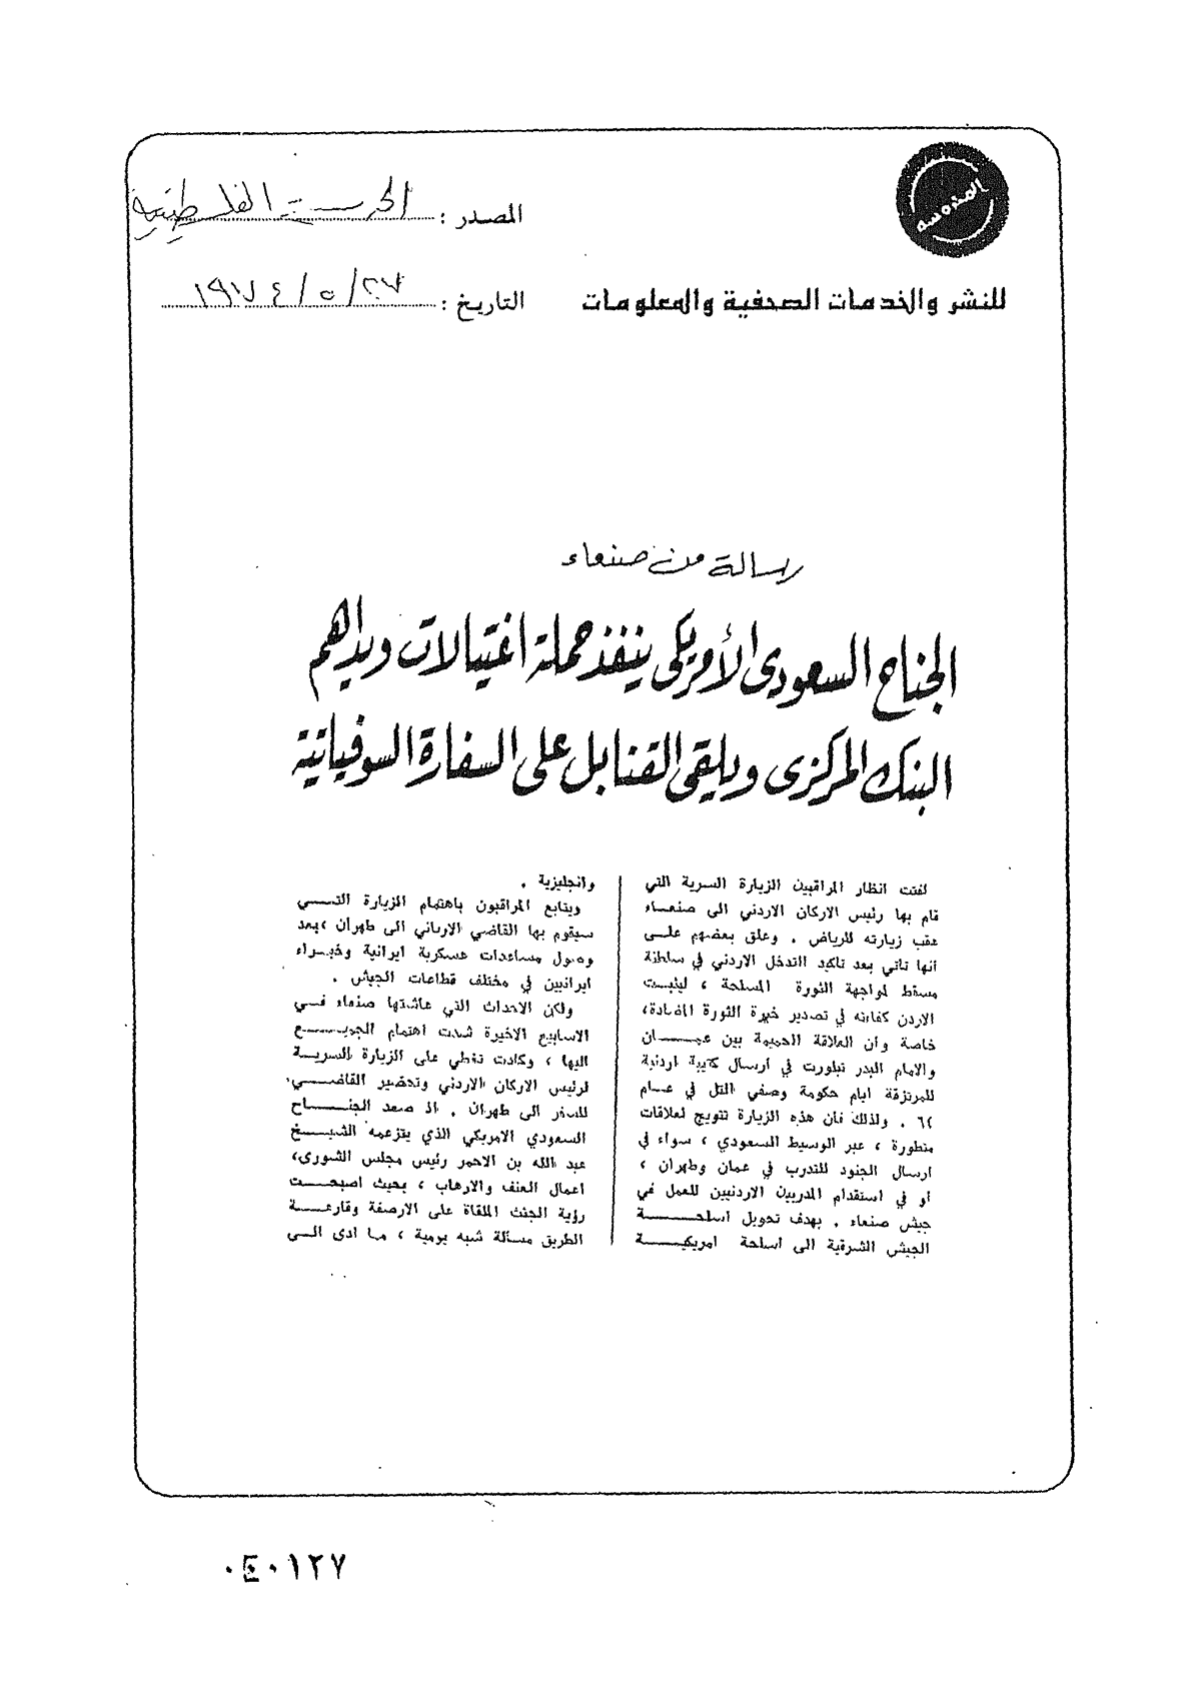 المحروسة
المصدر : الحرية الفلسطينية
للنشر والخدمات الصحفية والمعلومات
التاريخ : ٢٧/٥/١٩٧٤
رسالة من صنعاء
الجناح السعودى الأمريكى ينفذ حملة اغتيالات ويداهم
البنك المركزى ويلقى القنابل على السفارة السوفياتية
لفتت انظار المراقبين الزيارة السرية التي
قام بها رئيس الاركان الاردني الى صنعاء
عقب زيارته للرياض . وعلق بعضهم على
انها تاتي بعد تاكيد التدخل الاردني في سلطنة
مسقط لمواجهة الثورة المسلحة ، ليثبت
الاردن كفاءته في تصدير خبرة الثورة المضادة،
خاصة وأن العلاقة الحميمة بين عمان
والامام البدر تبلورت في أرسال كتيبة اردنية
للمرتزقة ايام حكومة وصفي التل في عام
٦٢ . ولذلك فأن هذه الزيارة تتويج لعلاقات
متطورة ، عبر الوسيط السعودي ، سواء في
ارسال الجنود للتدرب في عمان وطهران ،
أو في استقدام المدربين الاردنيين للعمل في
جيش صنعاء . بهدف تحويل اسلحة
الجيش الشرقية الى اسلحة امريكية
وانجليزية .
ويتابع المراقبون باهتمام الزيارة التي
سيقوم بها القاضي الارياني الى طهران ،بعد
وصول مساعدات عسكرية ايرانية وخبراء
ايرانيين في مختلف قطاعات الجيش .
ولكن الاحداث التي عاشتها صنعاء في
الاسابيع الاخيرة شدت اهتمام الجميع
اليها ، وكادت تغطي على الزيارة السرية
لرئيس الاركان الاردني وتحضير القاضي
للسفر الى طهران . اذ صعد الجناح
السعودي الامريكي الذي يتزعمه الشيخ
عبد الله بن الاحمر رئيس مجلس الشورى،
اعمال العنف والارهاب ، بحيث اصبحت
رؤية الجثث الملقاة على الارصفة وقارعة
الطريق مسألة شبه يومية ، مما ادى الى
٠٤٠١٢٧